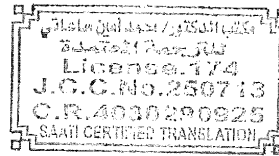 مكتب الدكتور / احمد امين ساعاتي
للترجمة المعتمدة
License-174
J.C.C.No.250713
C.R.4030290925
SAATI CERTIFIED TRANSLATION